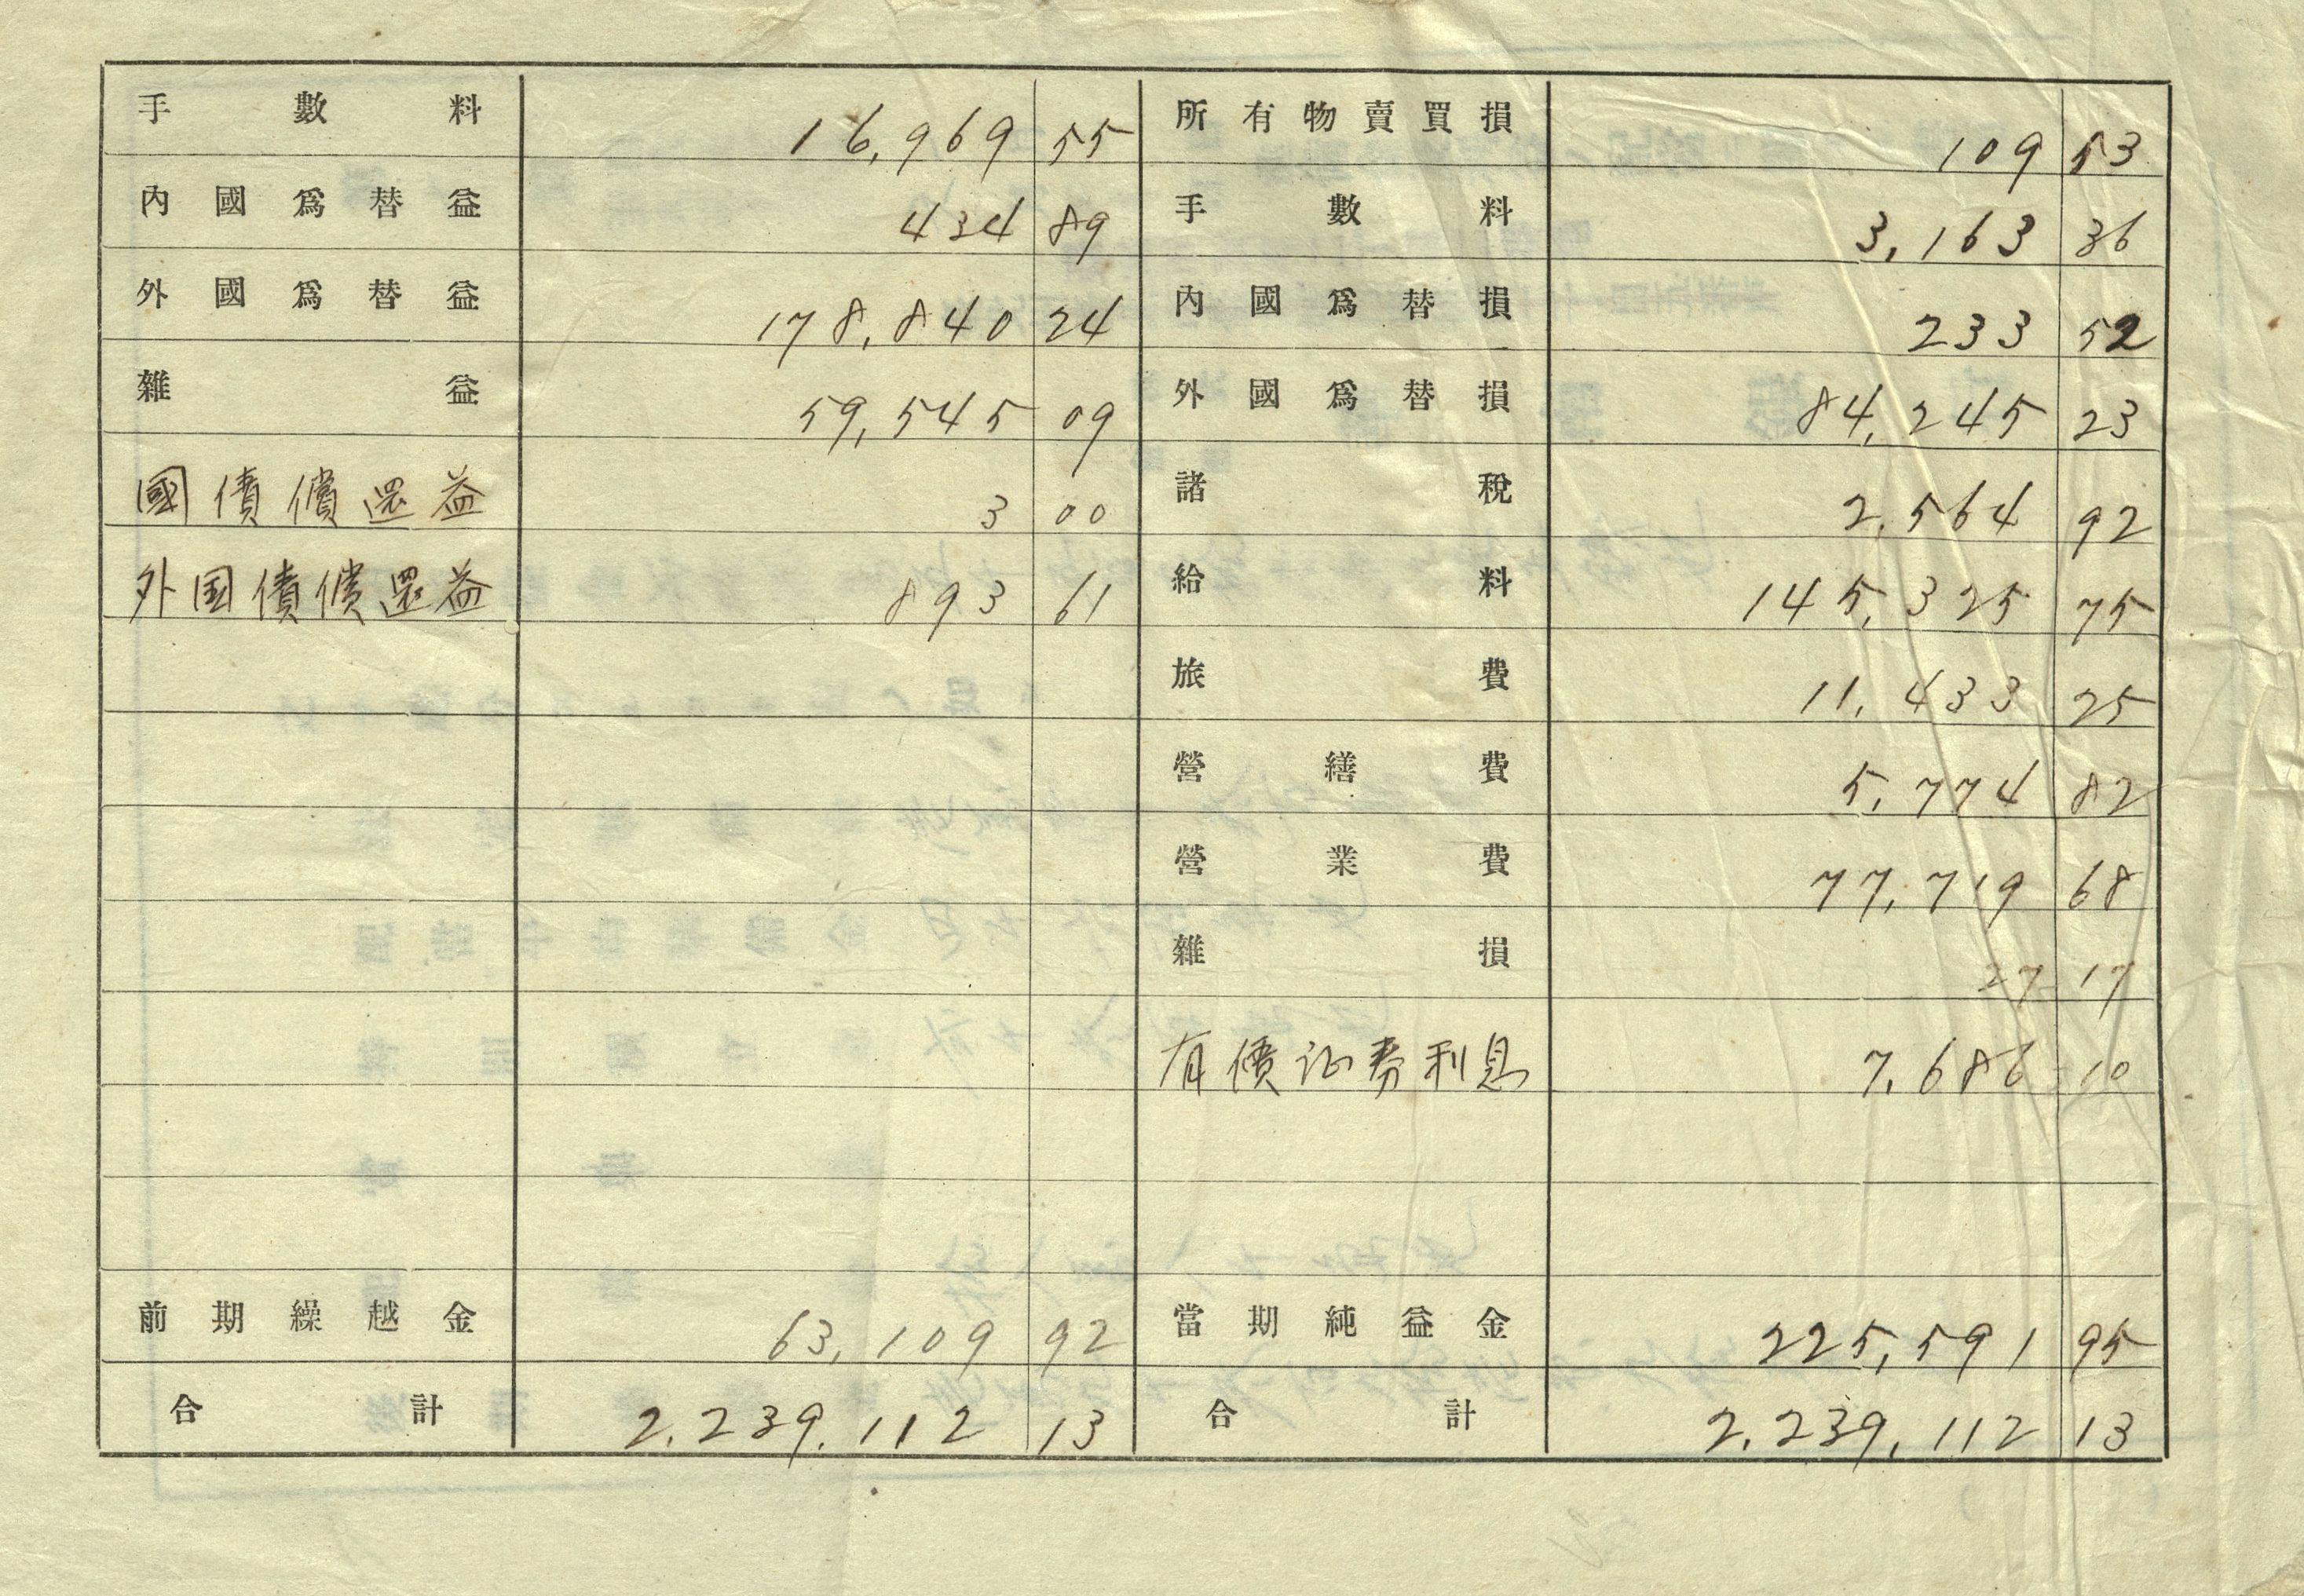 手數料 16,969 55 所有物賣買損 109 53
內國爲替益 434 89 手數料 3,163 36
外國爲替益 178,840 24 內國爲替損 233 52
雜益 59,545 09 外國爲替損 84,245 23
國債償還益 3 00 諸稅 2,564 92
外国債償還益 893 61 給料 145,325 75
旅費 11,433 25
營繕費 5,774 82
營業費 77,719 68
雜損 27 17
有價证券利息 7,686 10
前期繰越金 63,109 92 當期純益金 225,591 95
合計 2,239,112 13 合計 2,239,112 13